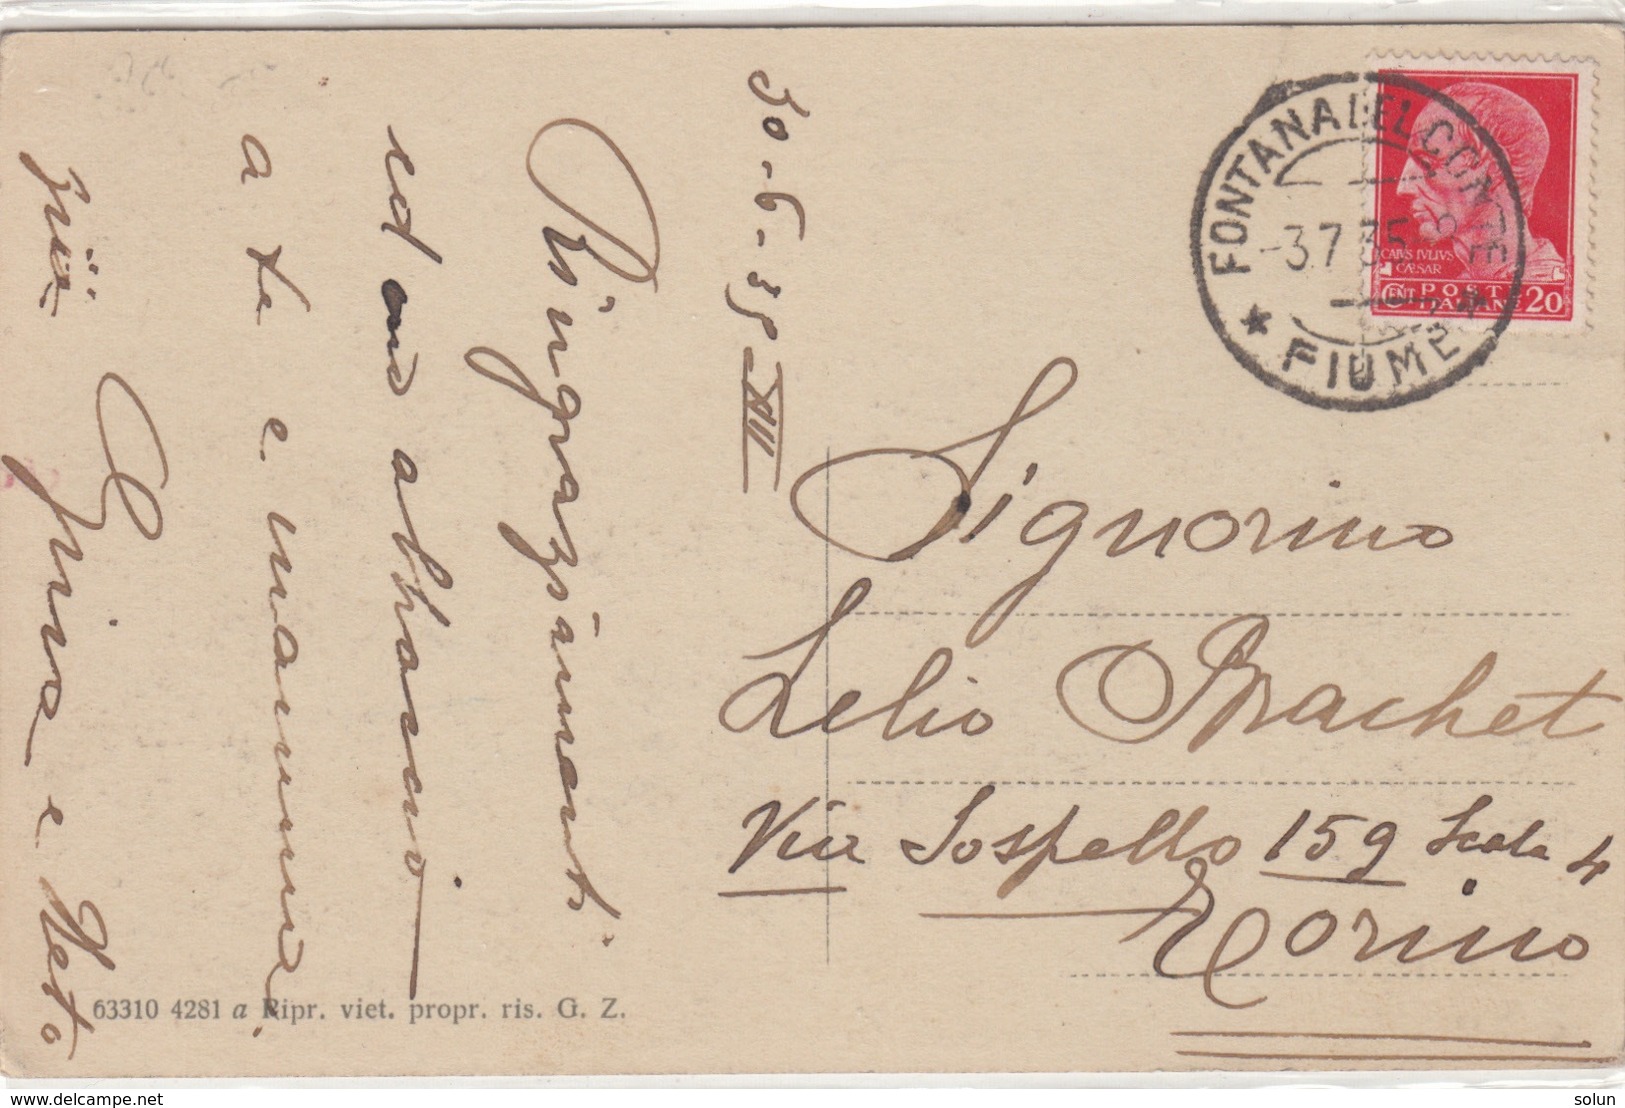 30-6-35 XIII
Ringraziamenti
ed un abbraccio
a te e mamma
zii
Gina e
FONTANA DEL CONTE
-3.7.35-8
* FIUME *
CAIVS IVLIVS
CÆSAR
CENT POSTE
ITALIANE 20
Signorino
Lelio Brachet
Via Sospello 159 Scala 4
Torino
63310 4281 a Ripr. viet. propr. ris. G. Z.
delcampe.net
solun